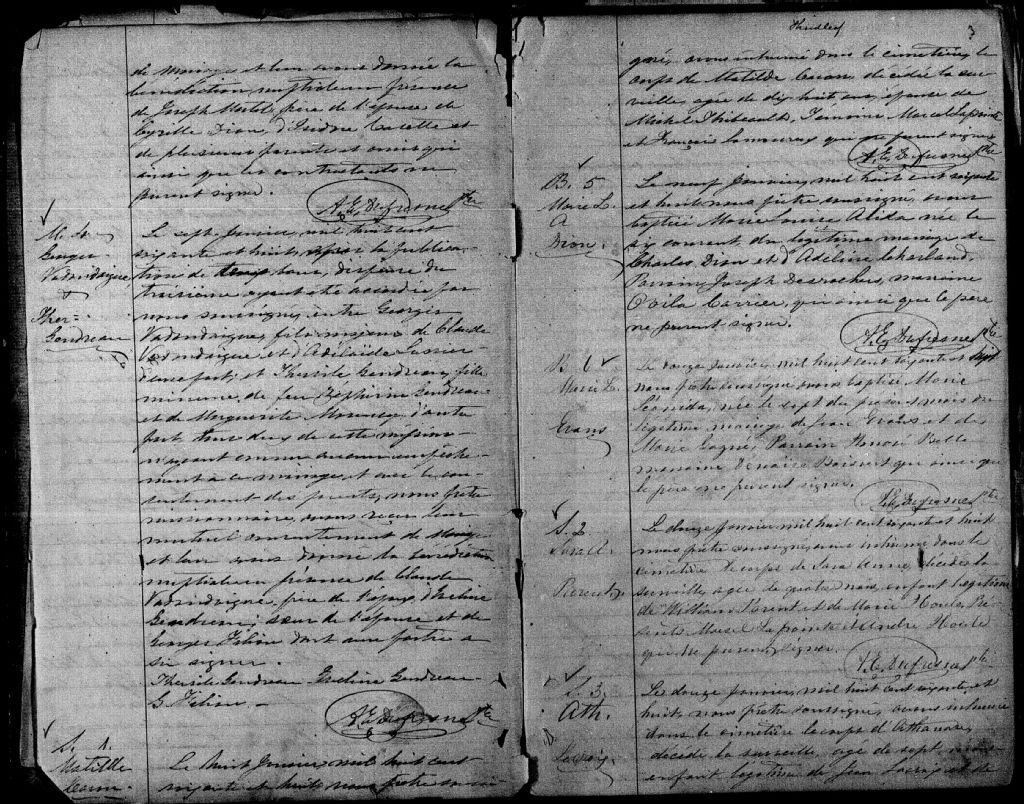 de mariage et leur avons donné la
bénédiction nuptiale en présence
de Joseph Martel, père de l'épouse, de
Cyrille Dion, d'Isidore et
de plusieurs parents et amis qui
ainsi que les contractants ne
purent signer.
A.E. Dufresne Ptre
M. 4
Georges
Vadnidaigne
&
Ther=
Gendreau
Le sept Janvier, mil huit cent
soixante et huit, après la publica-
tion de bans, dispense du
troisième ayant été accordée par
nous soussigné, entre Georges
Vadnidaigne, fils majeur de Claude
Vadnidaigne et d'Adélaïde
d'une part, et Thersile Gendreau, fille
mineure, de feu Zéphirin Gendreau
et de Marguerite d'autre
part, tous deux de cette mission
n'ayant connu aucun empêche-
ment à ce mariage et avec le con-
sentement des parents, nous prêtre
missionnaire, avons reçu leur
mutuel consentement de mariage
et leur avons donné la bénédiction
nuptiale en présence de Claude
Vadnidaigne, père de l'époux, d'Exeline
Gendreau, sœur de l'épouse et de
Georges Féline dont une partie a
su signer.
Thersile Gendreau Exeline Gendreau
G. Féline
A.E. Dufresne Ptre
S. 1.
Matilde
Caron
Le huit Janvier, mil huit cent
soixante et huit nous prêtre sous
3
signé, avons inhumé dans le cimetière, le
corps de Matilde Caron décédée la sur
veille, agée de dix huit ans, épouse de
Michel Thibeault, Témoins Marcel Lapointe
et François Lamoureux qui ne purent signer
A.E. Dufresne Ptre
B. 5
Marie L.
A
Dion
Le neuf Janvier, mil huit cent soixante
et huit nous prêtre soussigné, avons
baptisé Marie Louise Alida née le
six courant, du légitime mariage de
Charles Dion et d'Adeline Charland,
Parrain, Joseph Desrochers, marraine
Ovila Carrier, qui ainsi que le père
ne purent signer.
A.E. Dufresne Ptre
B 6
Marie L.
Evans
Le douze Janvier, mil huit cent soixante et huit
nous prêtre soussigné avons baptisé Marie
Léonida, née le sept du présent mois du
légitime mariage de Jean Evans et de
Marie Gagné, Parrain Honoré
marraine Boisvert qui ainsi que
le père ne purent signer.
A.E. Dufresne Ptre
S. 2.
Le douze Janvier mil huit cent soixante et huit
nous prêtre soussigné, avons inhumé dans le
cimetière le corps de décédée la
surveille, agée de quatre mois, enfant légitime
de William Parent et de Marie Houle, Pré-
sents, Marcel Lapointe et André Houle
qui ne purent signer.
A.E. Dufresne Ptre
S. 3
Ath.
Lacroix
Le douze Janvier, mil huit cent soixante et
huit, nous prêtre soussigné, avons inhumé
dans le cimetière le corps d'Athanase,
décédé la surveille, agé de sept mois
enfant légitime de Jean Lacroix et de